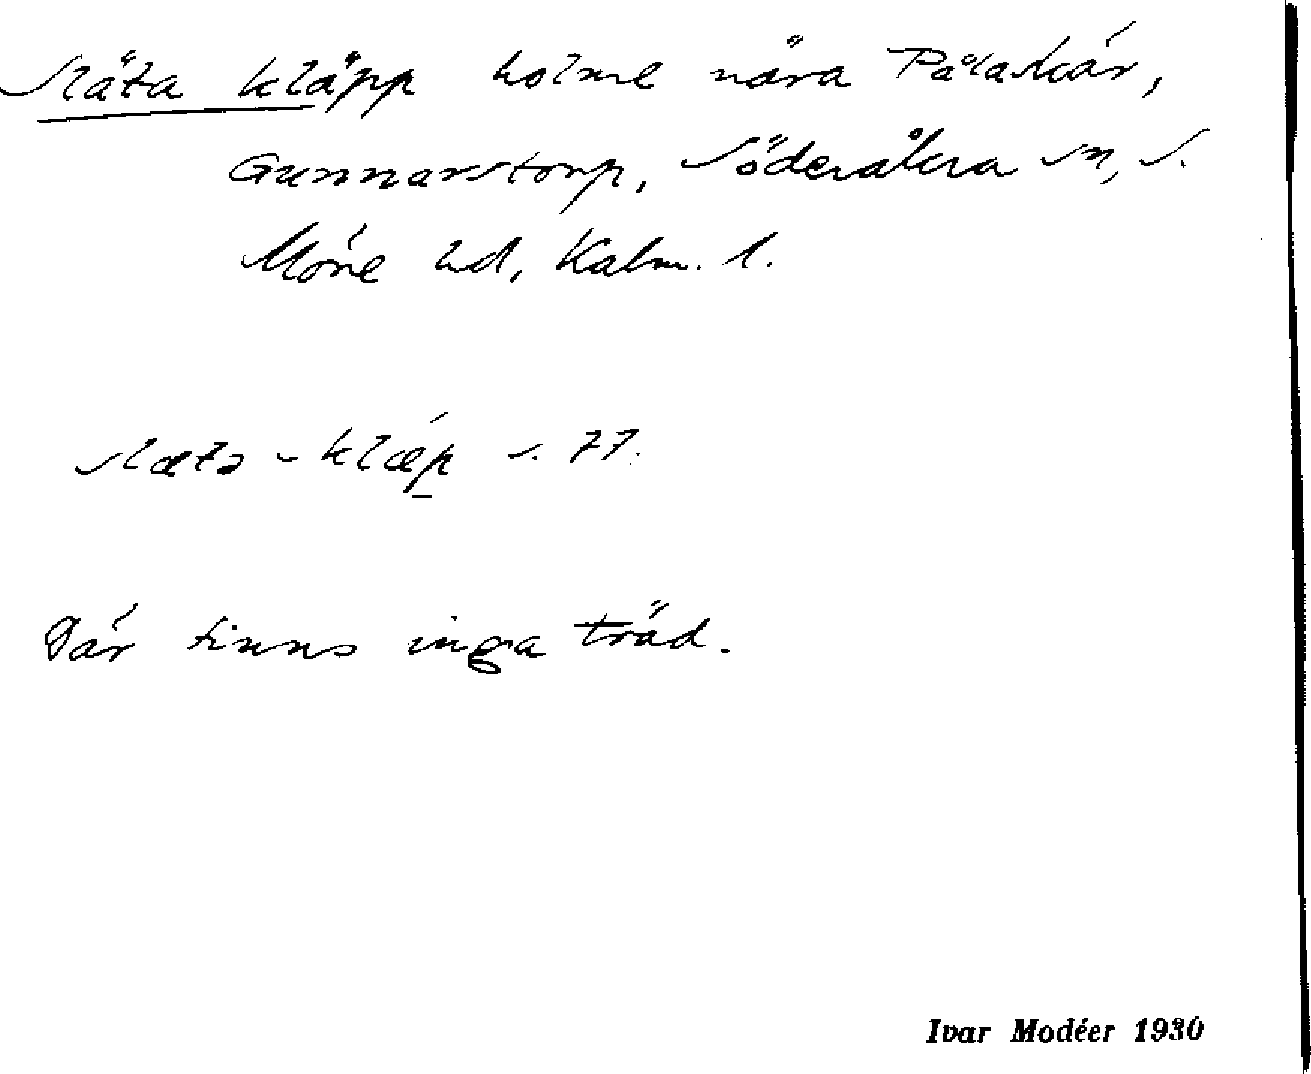 Släta kläpp holme nära Påläskär,
Gunnarstorp, Söderåkra sn, S.
Möre hd, Kalm. l.
slætə - klæp s. 77.
Där finns inga träd.
Ivar Modéer 1930